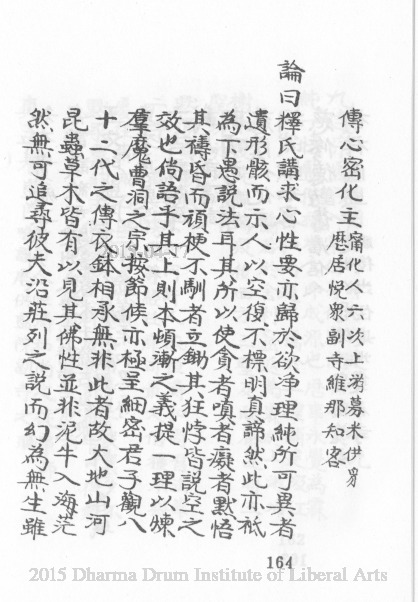 傳心密化主
甯化人六次上募米供
歷居悅衆副寺維那知客
論曰釋氏講求心性要亦歸於欲净理純所可異者
遺形骸而示人以空復不標明真諦然此亦祇
為下愚說法耳其所以使貪者嗔者癡者黙悟
其禱昏而頑梗不馴者立鋤其狂悖皆說空之
效也倘語乎其上則本頓漸之義提一理以煉
羣魔曹洞之宗按節候亦極呈細密君子觀八
十二代之傳衣鉢相承無非此者故大地山河
昆蟲草木皆有以見其佛性並非泥牛入海茫
然無可追尋彼夫沿莊列之說而幻為無生雖
164
2015 Dharma Drum Institute of Liberal Arts